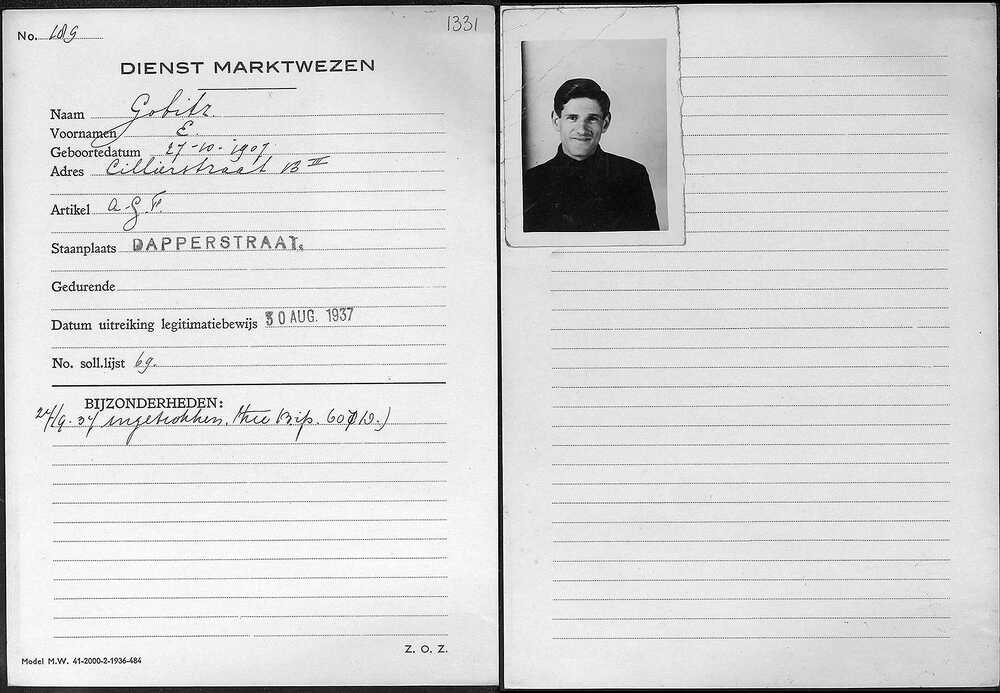 1331
No. 189
DIENST MARKTWEZEN
Naam Gobitz
Voornamen E.
Geboortedatum 27-10-1907
Adres Cilliersstraat 13 III
Artikel A.G.F.
Staanplaats DAPPERSTRAAT.
Gedurende
Datum uitreiking legitimatiebewijs 30 AUG. 1937
No. soll.lijst 69.
BIJZONDERHEDEN:
24/9. 37 ingetrokken.
Z. O. Z.
Model M.W. 41-2000-2-1936-484